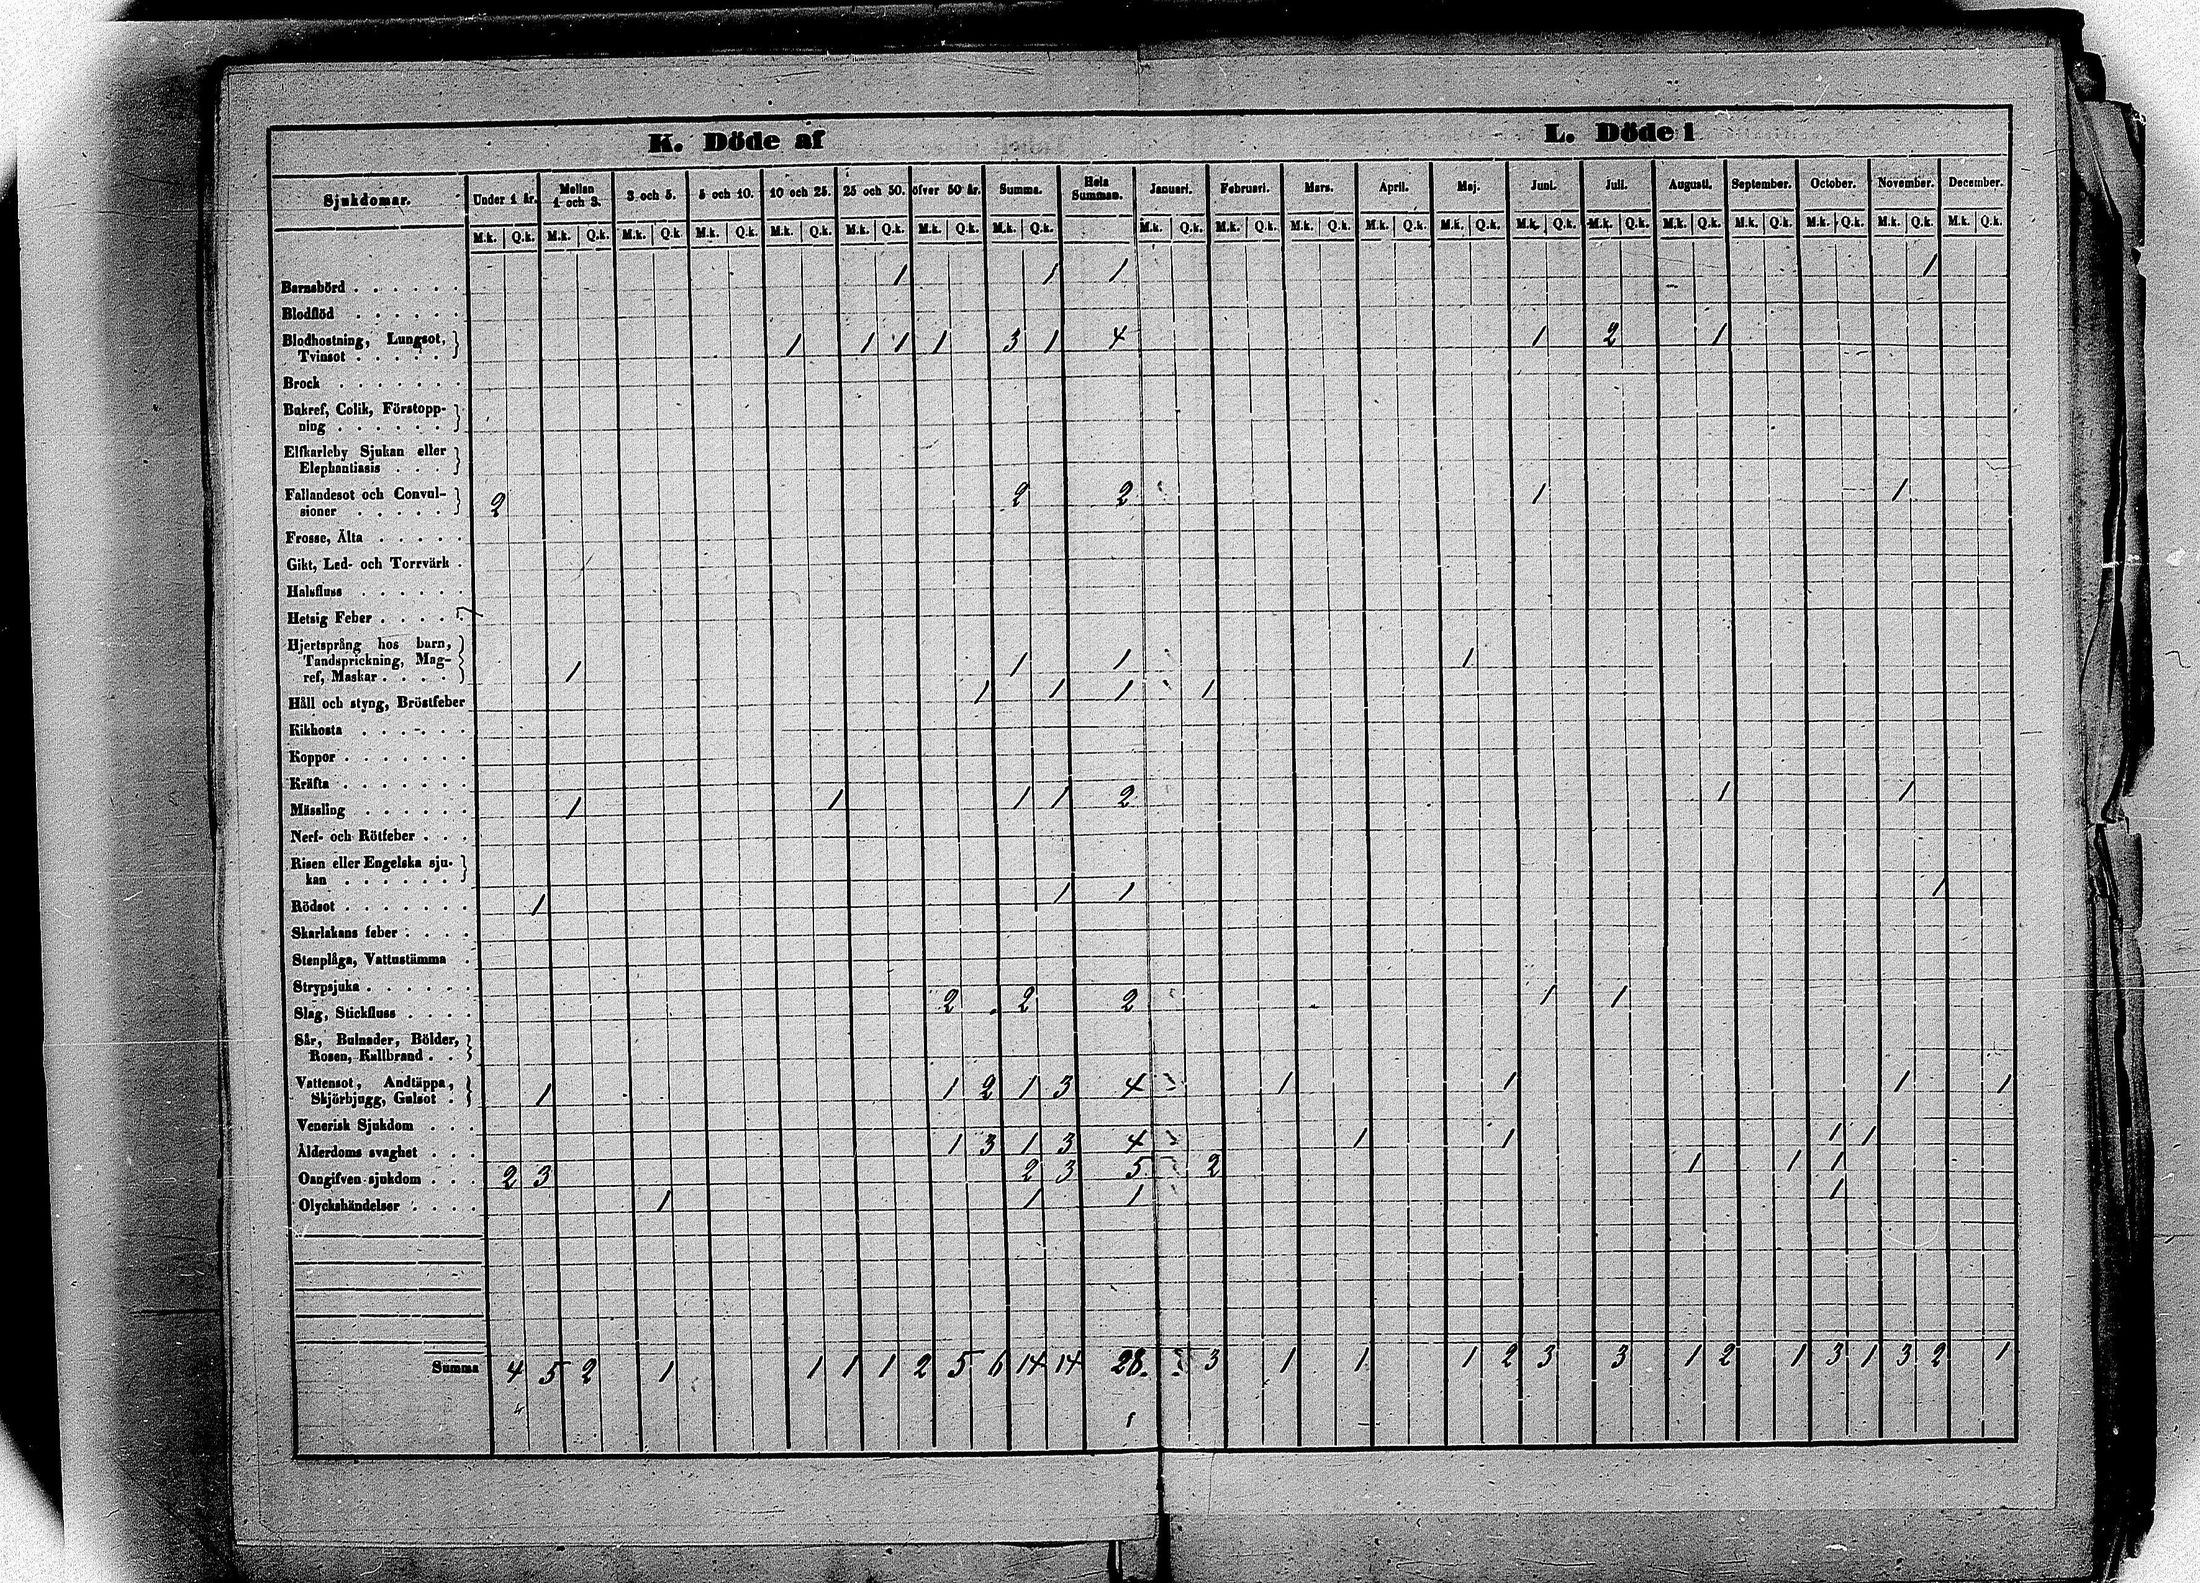 K. Döde af L. Döde i
Sjukdomar. Under 1 år. Mellan 1 och 3. 3 och 5. 5 och 10. 10 och 25. 25 och 50. öfver 50 år. Summa. Hela Summan. Januari. Februari. Mars. April. Maj. Juni. Juli. Augusti. September. October. November. December.
M.k. Q.k. M.k. Q.k. M.k. Q.k M.k. Q.k. M.k. Q.k. M.k. Q.k. M.k. Q.k. M.k. Q.k. M.k. Q.k. M.k. Q.k. M.k. Q.k. M.k. Q.k. M.k. Q.k. M.k. Q.k. M.k. Q.k. M.k. Q.k. M.k. Q.k. M.k. Q.k. M.k. Q.k. M.k. Q.k.
Barnsbörd . . . . . . 1 1 1 1
Blodflöd . . . . . .
Blodhostning, Lungsot,
Tvinsot . . . . . 1 1 1 1 3 1 4 1 2 1
Brock . . . . . . .
Bukref, Colik, Förstopp-
ning . . . . . .
Elfkarleby Sjukan eller
Elephantiasis . . .
Fallandesot och Convul-
sioner . . . . . 2 2 2 1 1
Frosse, Älta . . . . .
Gikt, Led- och Torrvärk .
Halsfluss . . . . . .
Hetsig Feber . . . . .
Hjertsprång hos barn,
Tandsprickning, Mag-
ref, Maskar . . . . 1 1 1 1
Håll och styng, Bröstfeber 1 1 1 1
Kikhosta . . . . . .
Koppor . . . . . . .
Kräfta . . . . . . .
Mässling . . . . . . 1 1 1 1 2 1 1
Nerf- och Rötfeber . . .
Risen eller Engelska sju-
kan . . . . . .
Rödsot . . . . . . . 1 1 1 1
Skarlakans feber . . . .
Stenplåga, Vattustämma .
Strypsjuka . . . . . .
Slag, Stickfluss . . . . 2 2 2 1 1
Sår, Bulnader, Bölder,
Rosen, Kallbrand . .
Vattensot, Andtäppa,
Skjörbjugg, Gulsot . 1 1 2 1 3 4 1 1 1 1
Venerisk Sjukdom . . .
Ålderdoms svaghet . . . 1 3 1 3 4 1 1 1 1
Oangifven sjukdom . . . 2 3 2 3 5 2 1 1 1
Olyckshändelser . . . . 1 1 1 1
Summa 4 5 2 1 1 1 1 2 5 6 14 14 28. 3 1 1 1 2 3 3 1 2 1 3 1 3 2 1